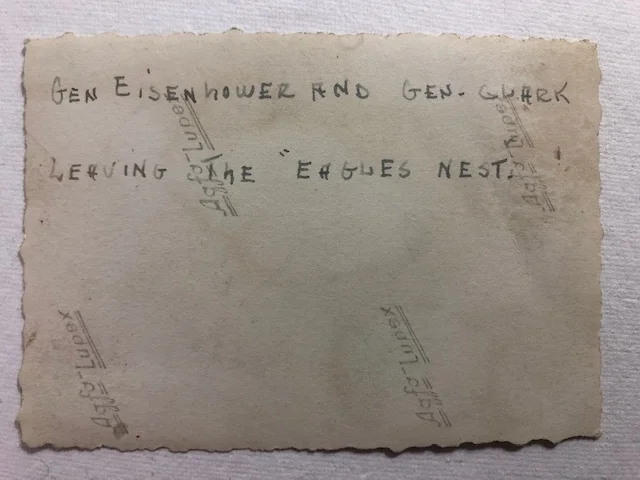 GEN EISENHOWER AND GEN- CLARK
LEAVING THE "EAGLES NEST.
Agfa-Lupex
Agfa-Lupex
Agfa-Lupex
Agfa-Lupex